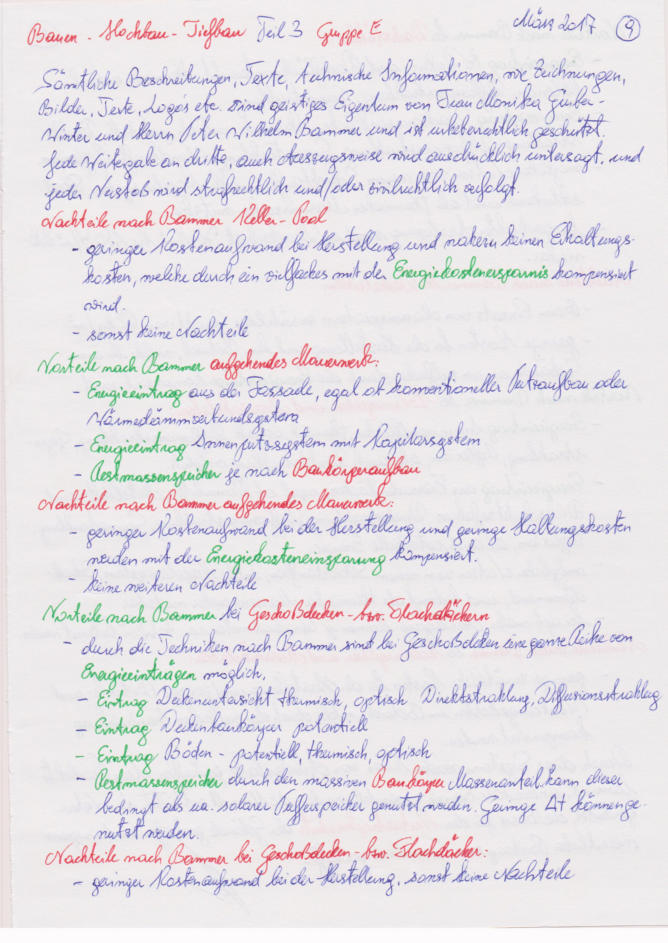 Bauen - Hochbau - Tiefbau Teil 3 Gruppe E März 2017 9
Sämtliche Beschreibungen, Texte, technische Informationen, wie Zeichnungen,
Bilder, Texte, Logos etc. sind geistiges Eigentum von Frau Monika Gruber-
Winter und Herrn Peter Wilhelm Bammer und ist urheberrechtlich geschützt.
Jede Weitergabe an dritte, auch Auszugsweise wird ausdrücklich untersagt, und
jeder Verstoß wird strafrechtlich und/oder zivilrechtlich verfolgt.
Nachteile nach Bammer Keller-Pool
- geringer Kostenaufwand bei Herstellung und nahezu keinen Erhaltungs-
kosten, welche durch ein vielfaches mit der Energiekostenersparnis kompensiert
wird.
- sonst keine Nachteile
Vorteile nach Bammer aufgehendes Mauerwerk:
- Energieeintrag aus der Fassade, egal ob konventioneller Putzaufbau oder
Wärmedämmverbundsystem
- Energieeintrag Innenputzsystem mit Kapilarsystem
- Restmassenspeicher je nach Baukörperaufbau
Nachteile nach Bammer aufgehendes Mauerwerk:
- geringer Kostenaufwand bei der Herstellung und geringe Haltungskosten
werden mit der Energiekosteneinsparung kompensiert.
- keine weiteren Nachteile
Vorteile nach Bammer bei Geschoßdecken- bzw. Flachdächern
- durch die Techniken nach Bammer sind bei Geschoßdecken eine ganze Reihe von
Energieeinträgen möglich,
- Eintrag Deckenuntersicht thermisch, optisch Direktstrahlung, Diffusionsstrahlung
- Eintrag Deckenbaukörper potentiell
- Eintrag Böden - potentiell, thermisch, optisch
- Restmassenspeicher durch den massiven Baukörper Massenanteil kann dieser
bedingt als ua. solarer Pufferspeicher genutzt werden. Geringe Δt können ge-
nutzt werden.
Nachteile nach Bammer bei Geschoßdecken- bzw. Flachdächer:
- geringer Kostenaufwand bei der Herstellung, sonst keine Nachteile